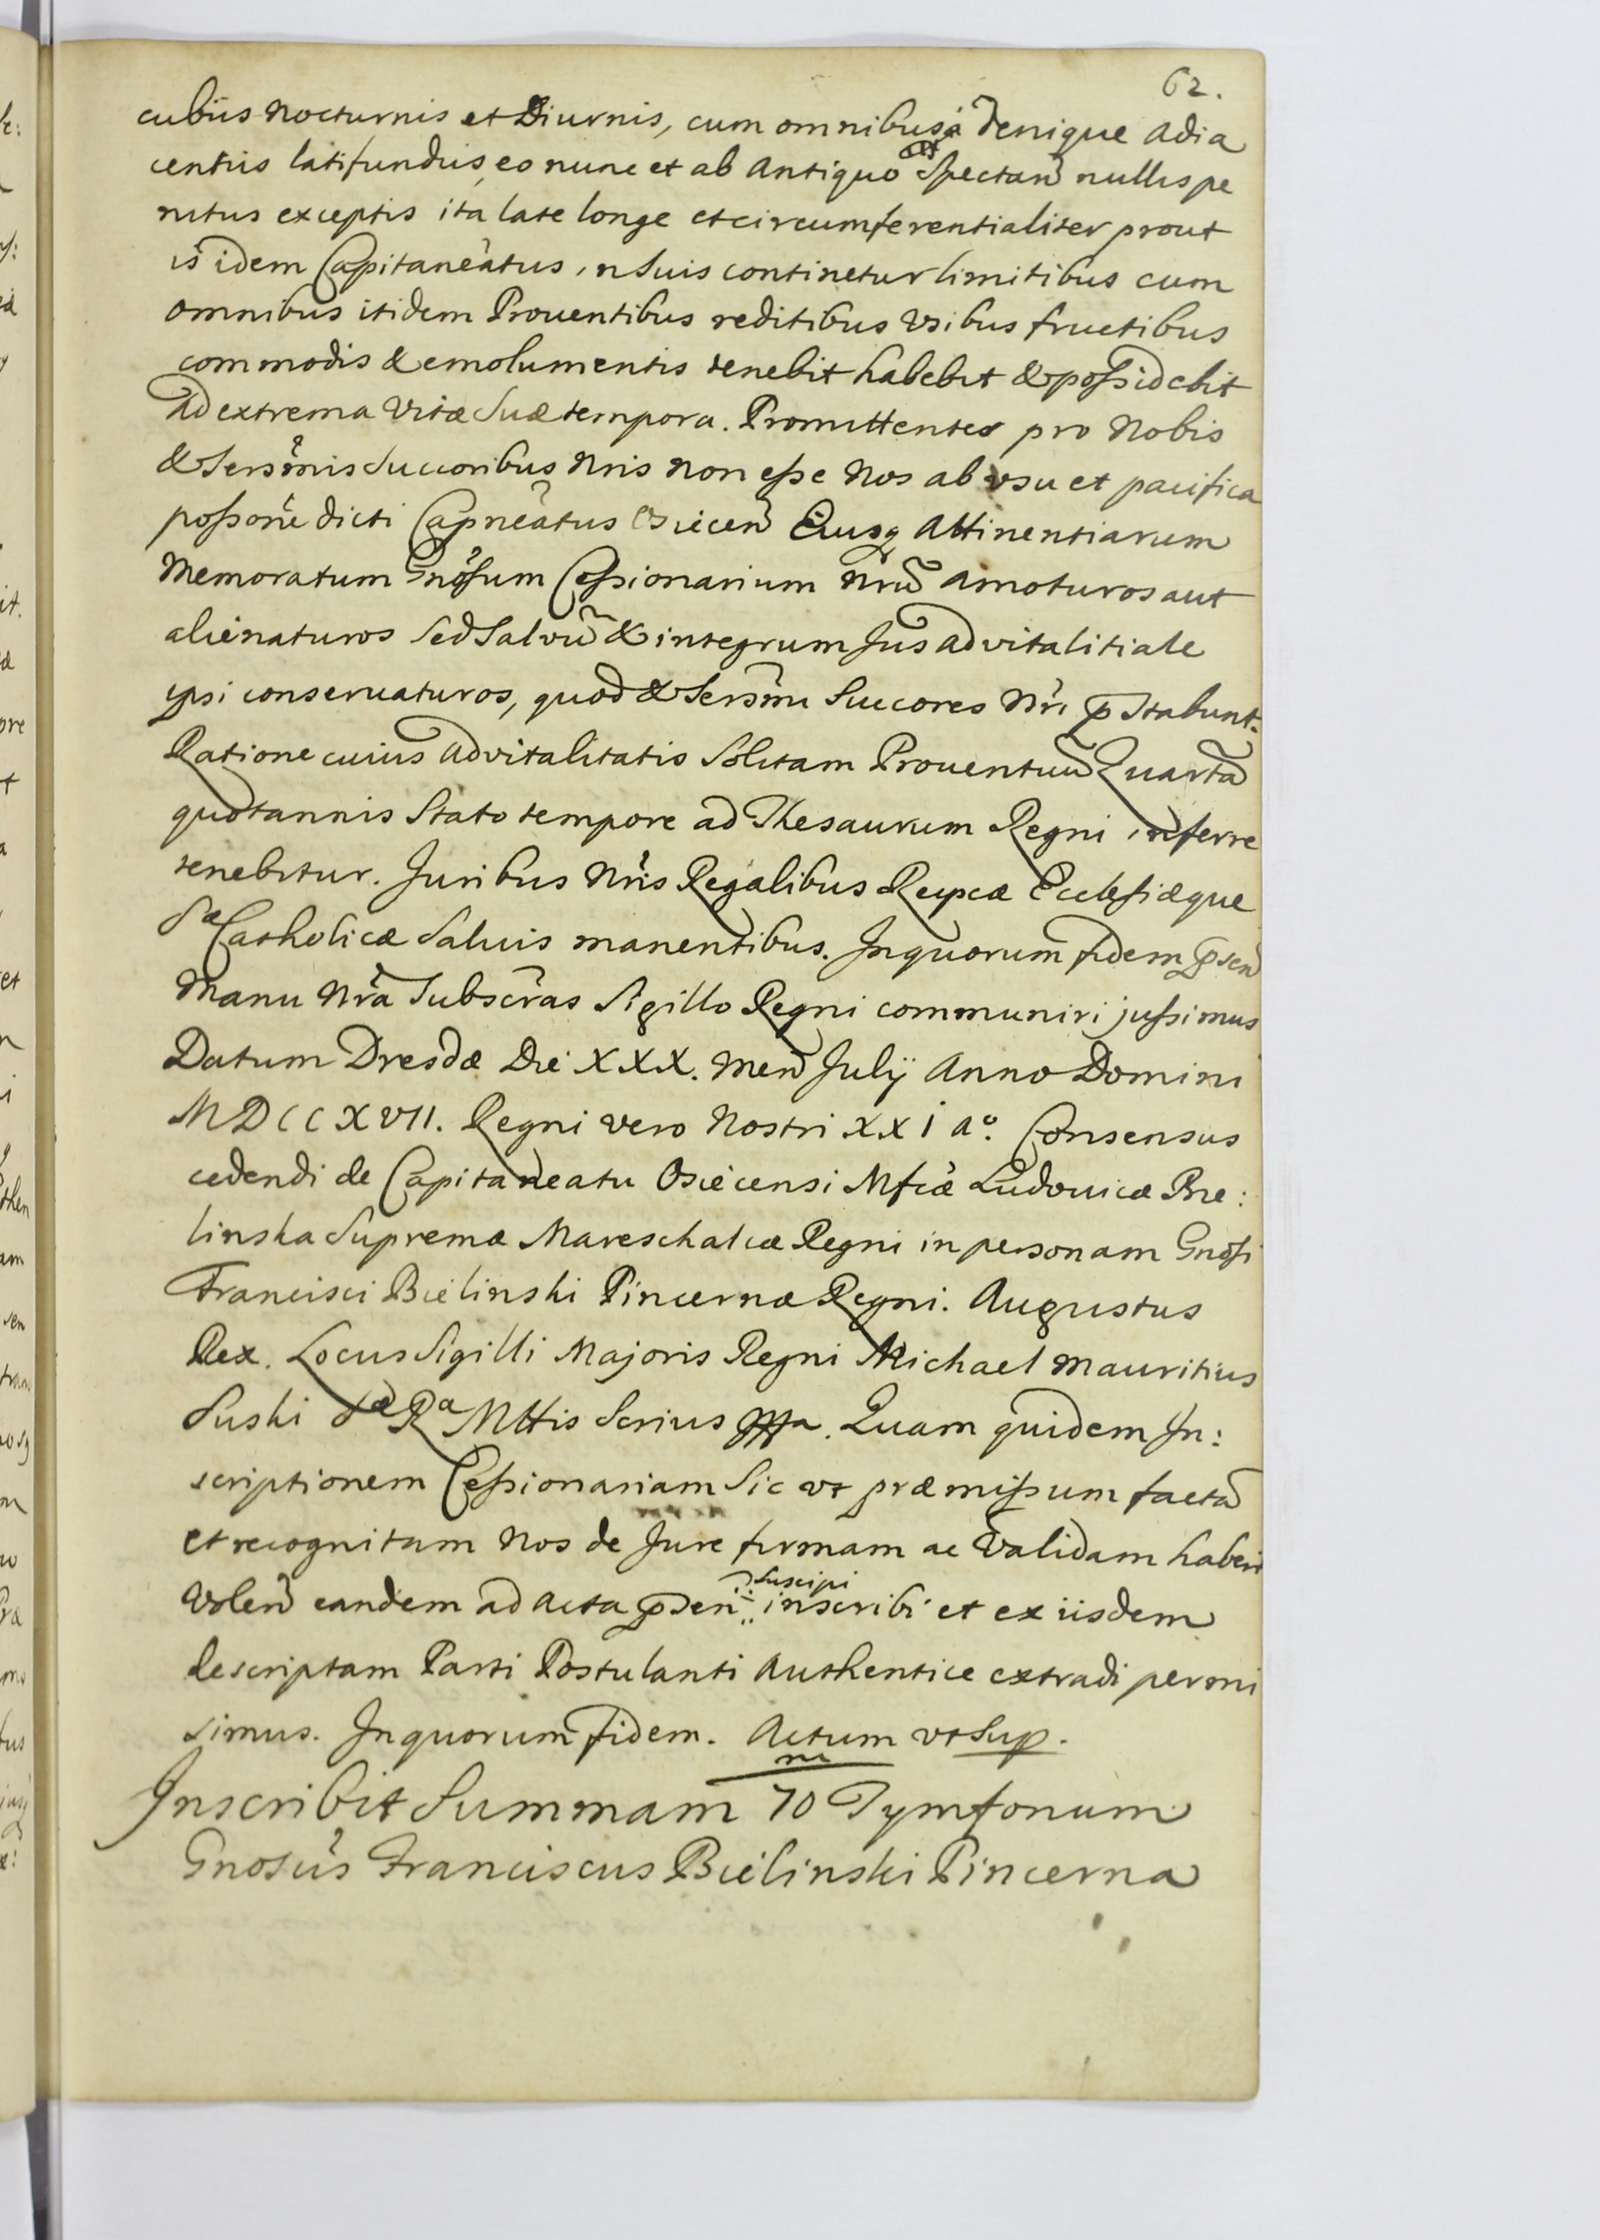 62.
cubiis nocturnis et Diurnis, cum omnibus denique Adia
centiis latifundiis, eo nunc et ab Antiquo Spectan nullis pe
nitus exceptis ita late longe et circumferentialiter prout
is idem Capitaneatus in suis continetur limitibus cum
omnibus itidem Prouentibus reditibus Vsibus fructibus
commodis & emolumentis tenebit habebit & possidebit
ad extrema Vitæ Suæ tempora. Promittentes pro Nobis
& Sersmis Succoribus Nris Non esse Nos ab vsu et pacifica
possone dicti Capneatus Osiecen Eiusq Attinentiarum
Memoratum Gnosum Cessionarium Nrum Amoturos aut
alienaturos Sed Salvum & integrum Jus advitalitiale
ipsi conseruaturos, quod & Sersmi Succores Nri pstabunt.
Ratione cuius advitalitatis Solitam Prouentuum Quartam
quotannis Stato tempore ad Thesaurum Regni inferre
tenebitur. Juribus Nris Regalibus Reipcæ Ecclesiæque
Sæ Catholicæ Saluis manentibus. In quorum fidem psen
Manu Nra Subscras Sigillo Regni communiri jussimus
Datum Dresdæ Die XXX. Men Julij Anno Domini
MDCCXVII. Regni vero Nostri XXI Ao. Consensus
cedendi de Capitaneatu Osiecensi Mfcæ Ludouicæ Bie:
linska Supremæ Mareschalcæ Regni in personam Gnosi
Francisci Bielinski Pincernæ Regni. Augustus
Rex. Locus Sigilli Majoris Regni Michael Mauritius
Suski Sæ Ra Mttis Scrius. Quam quidem In:
scriptionem Cessionariam Sic vt præmissum factam
et recognitam Nos de Jure firmam ac Validam haberi
Volen eandem ad Acta psen: suscipi inscribi et ex iisdem
descriptam Parti Postulanti Authentice extradi permi
simus. In quorum fidem. Actum vt Sup.
Inscribit Summam 70 m Tymfonum
Gnosus Franciscus Bielinski Pincerna